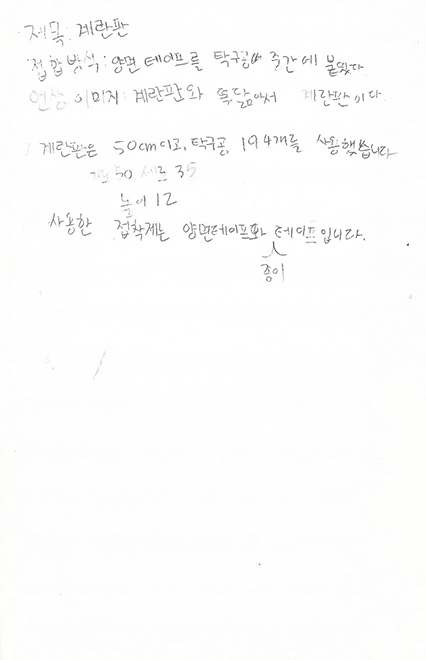 제목: 계란판
접합방식: 양면 테이프를 탁구공에 중간에 붙였다
연상 이미지: 계란판와 똑닮아서 계란판이다.
계란판은 50cm이고, 탁구공 194개를 사용했습니다
가로 50 세로 35
높이 12
사용한 접착제는 양면테이프와 테이프입니다.
종이